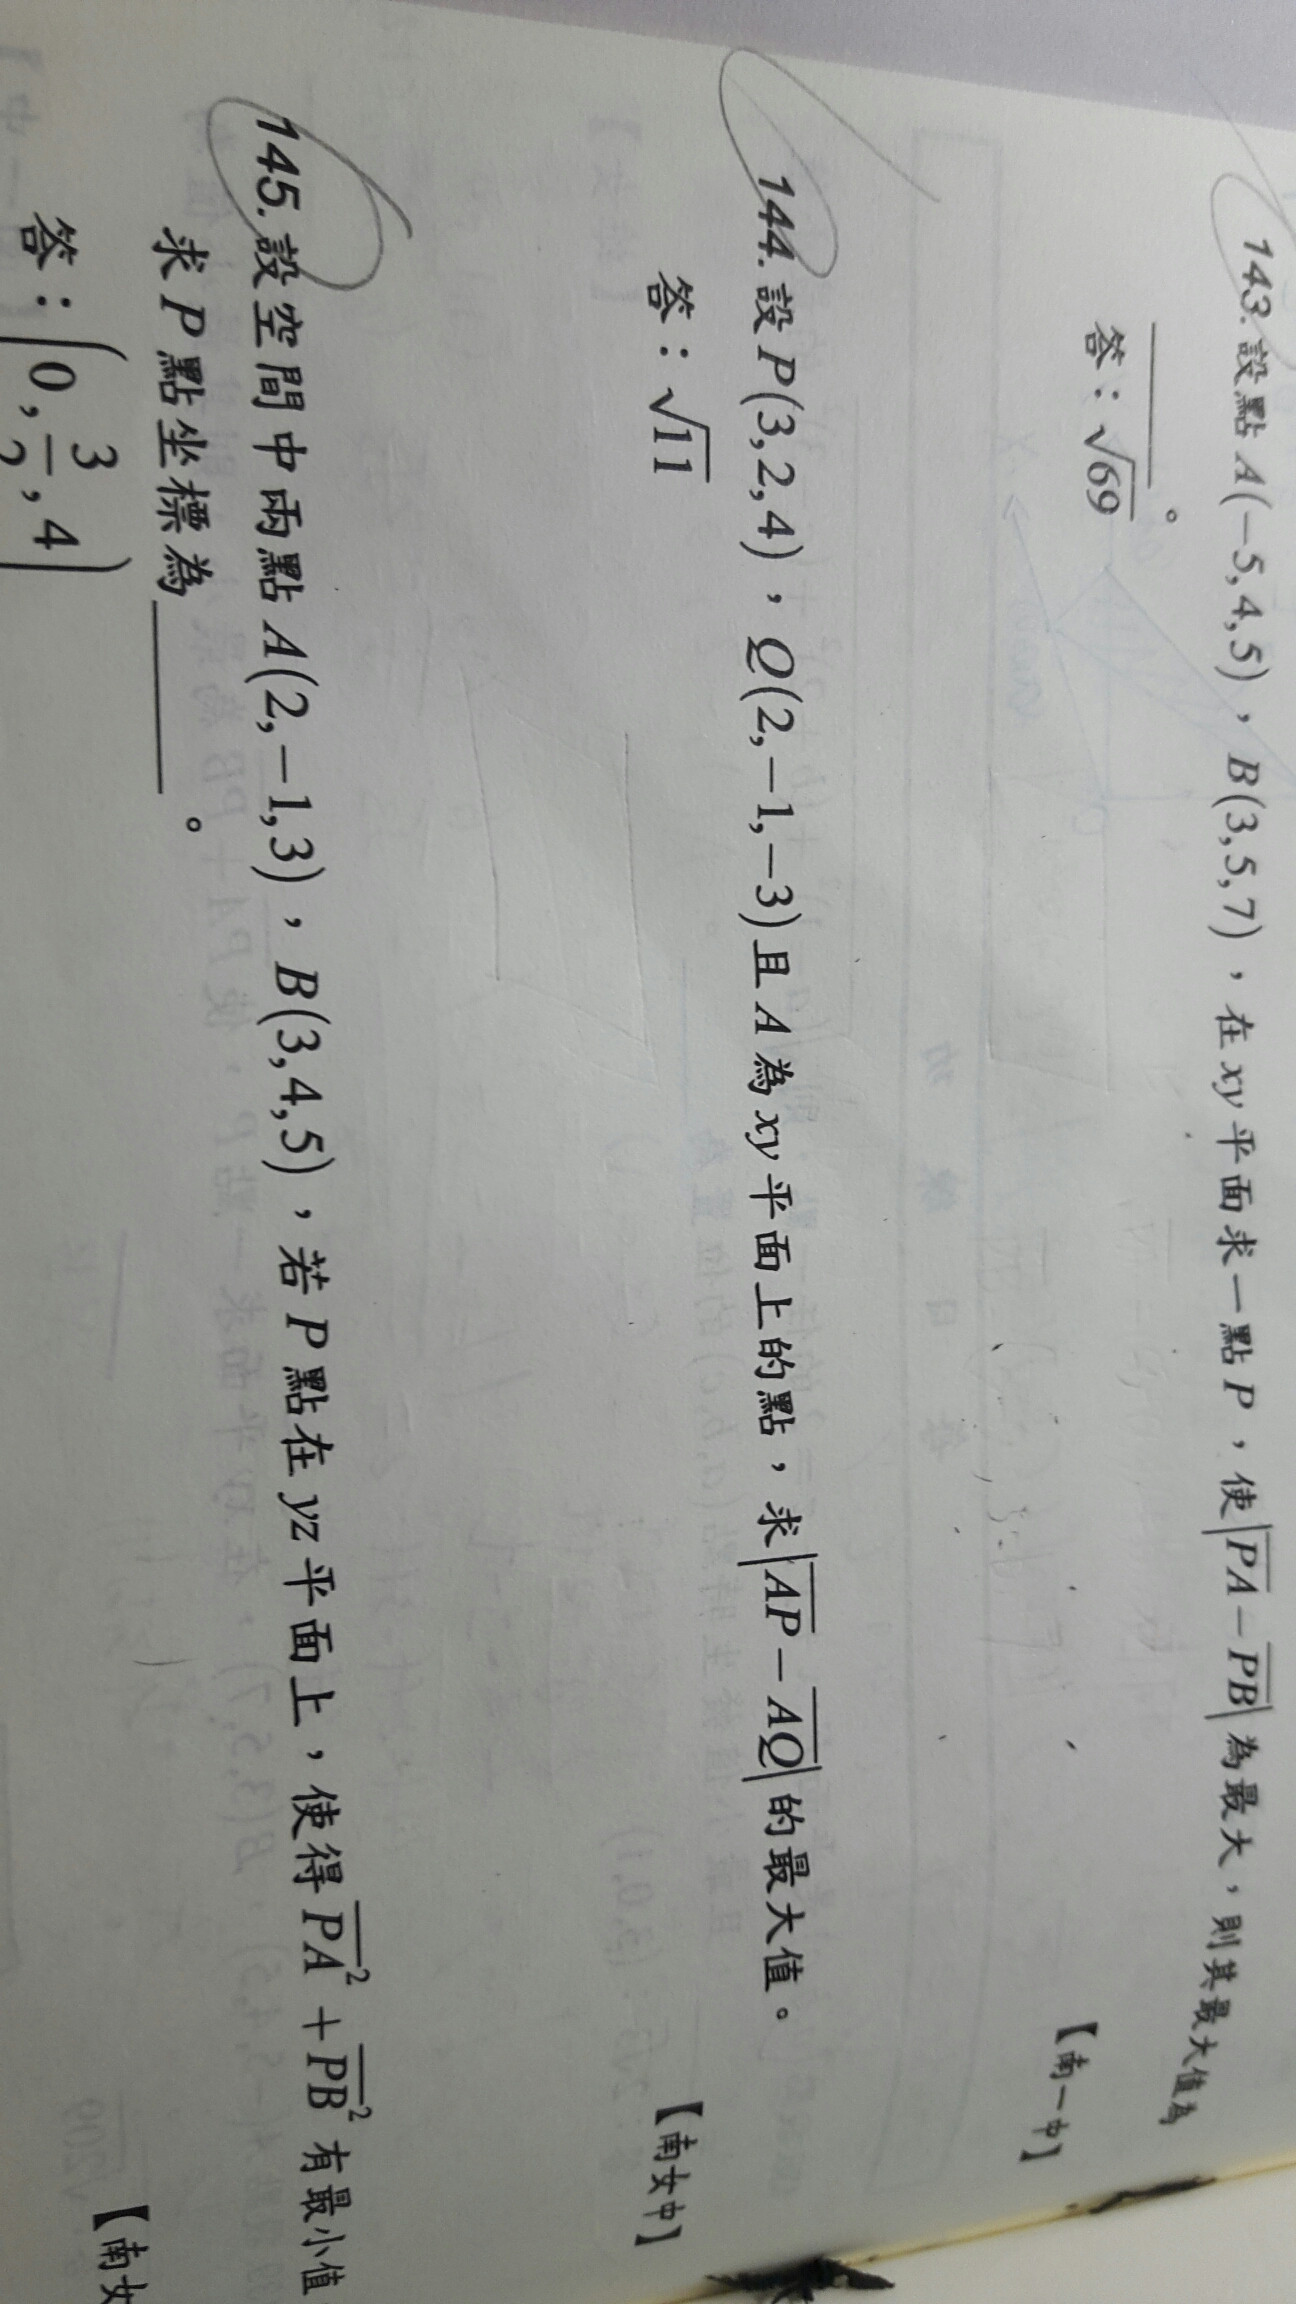 143.設點A(−5,4,5),B(3,5,7),在xy平面求一點P,使|PA−PB|為最大,則其最大值為
____。
【南一中】
答:√69
144.設P(3,2,4),Q(2,−1,−3)且A為xy平面上的點,求|AP−AQ|的最大值。
【南女中】
答:√11
145.設空間中兩點A(2,−1,3),B(3,4,5),若P點在yz平面上,使得PA²+PB²有最小值
求P點坐標為____。
【南女
答:(0,3/2,4)